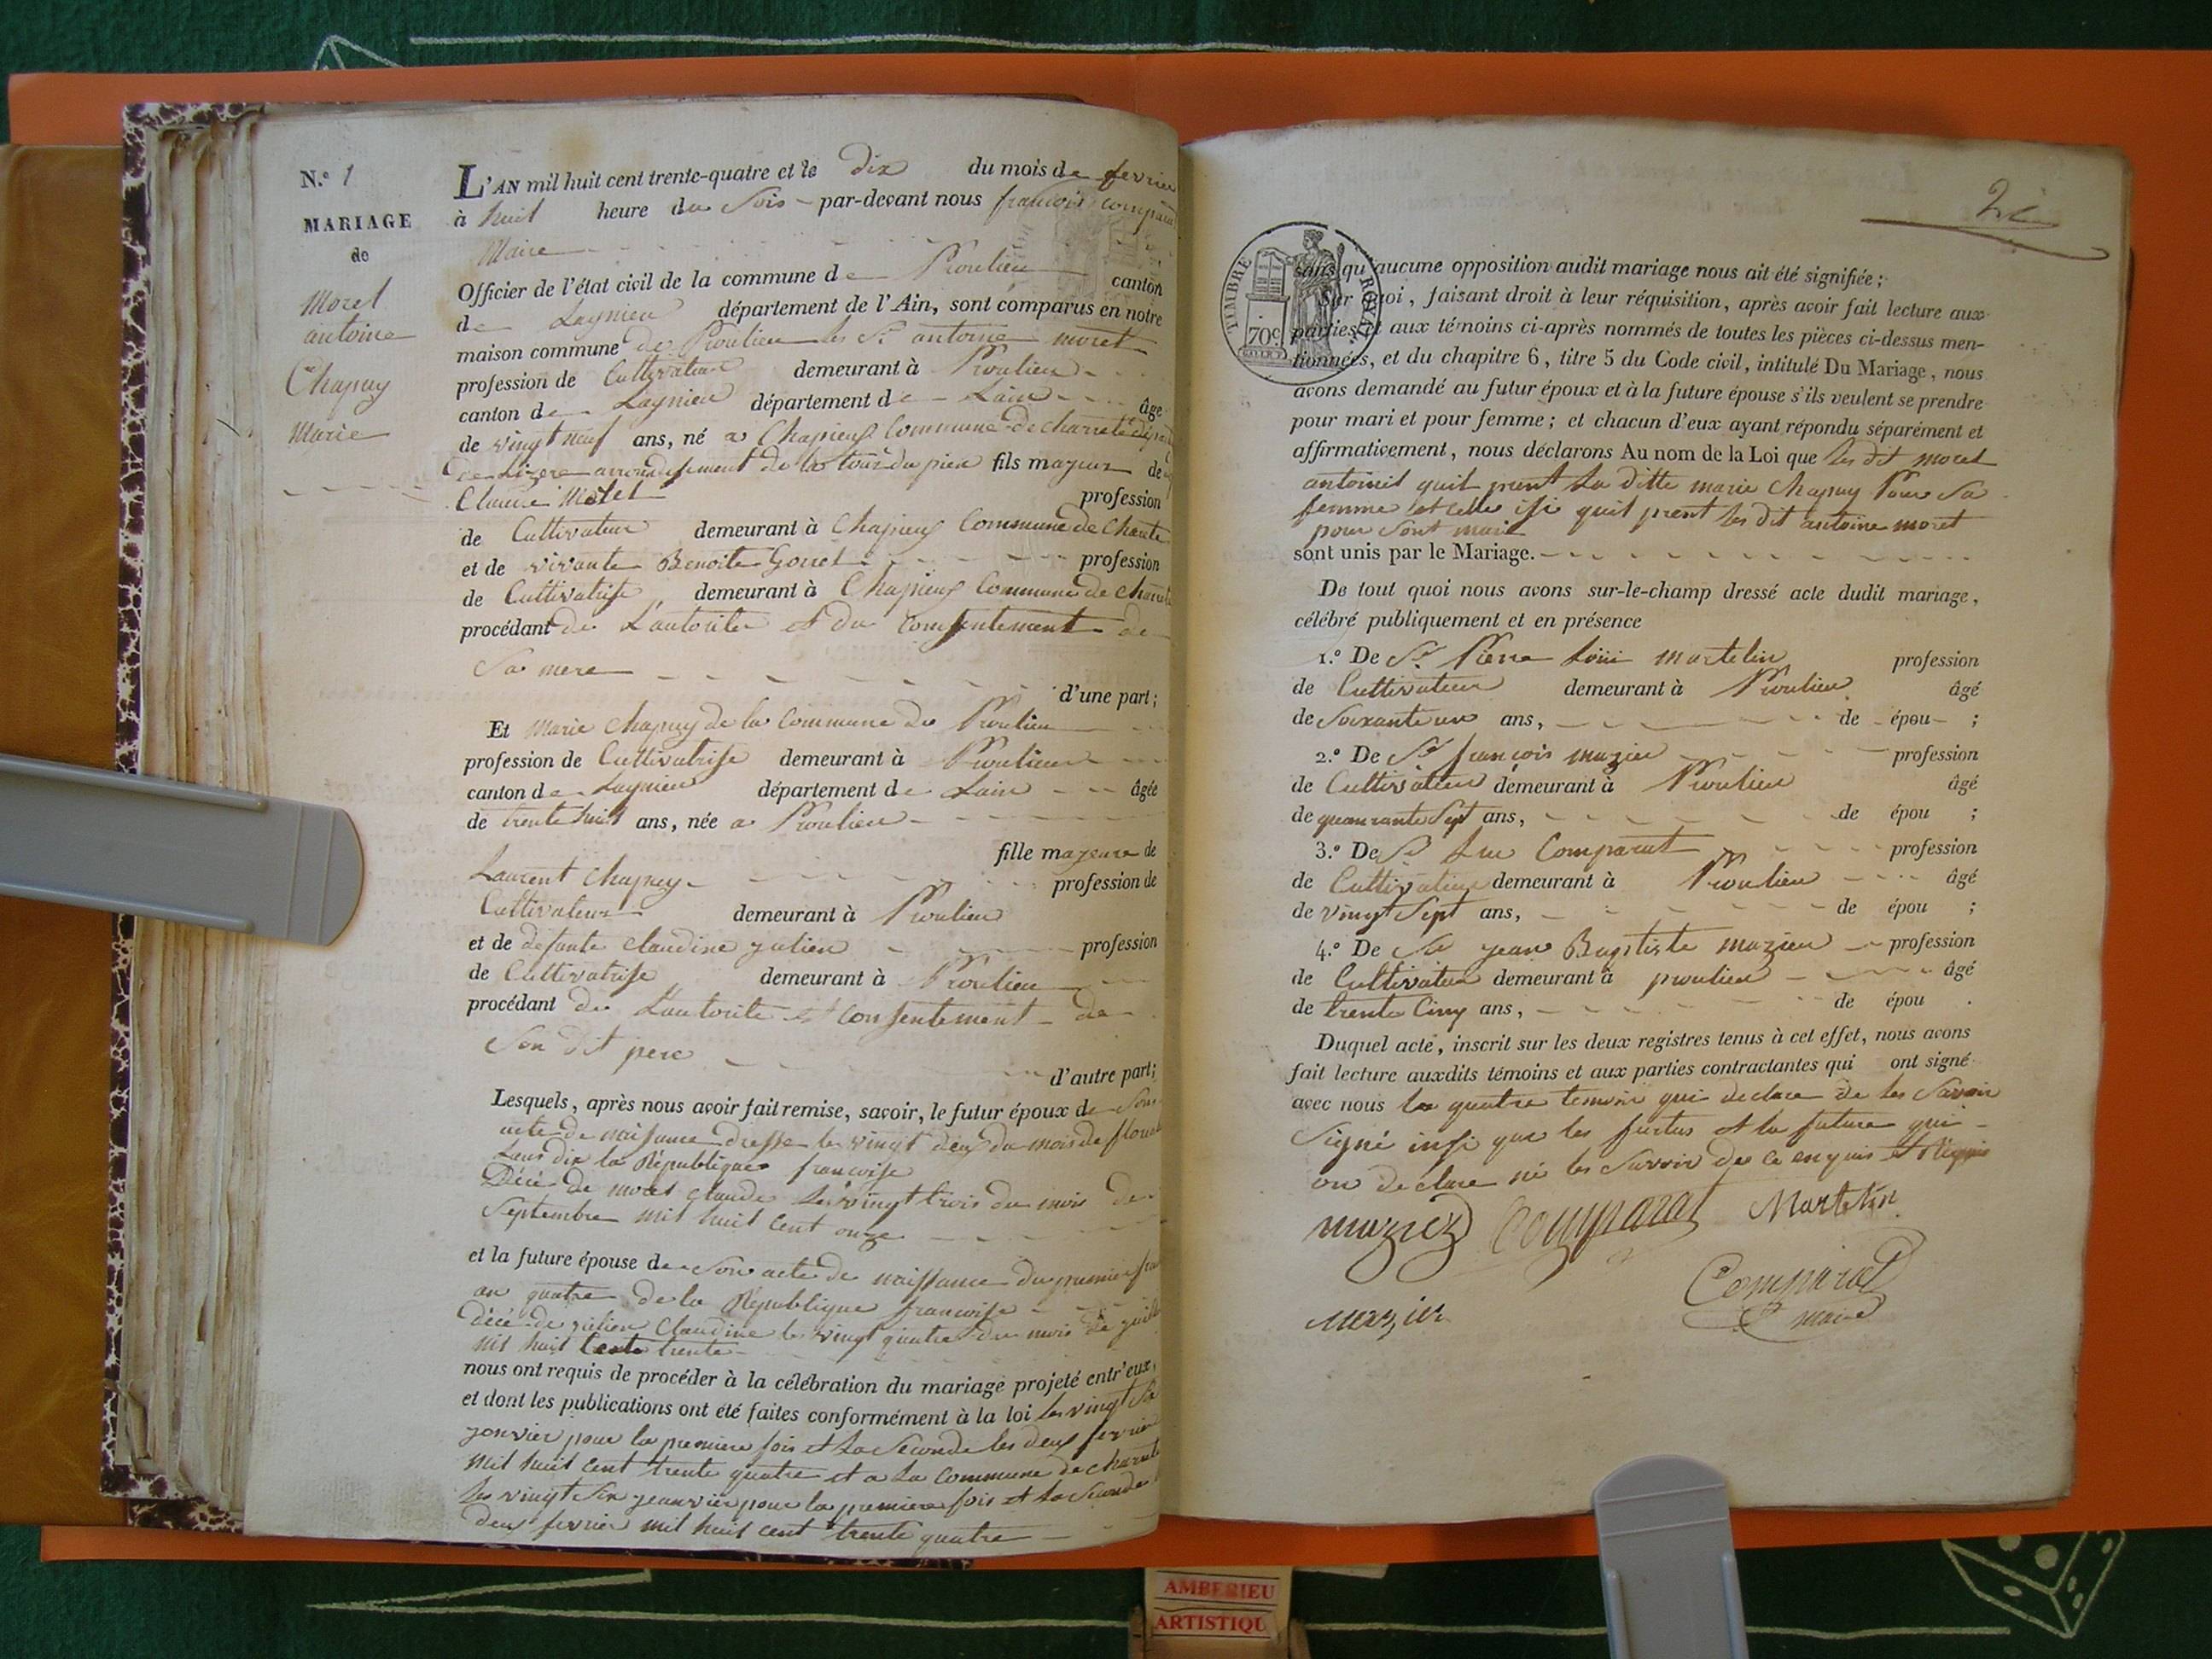 N.º 1
MARIAGE
de
Moret
antoine
Chapuy
Marie
L'AN mil huit cent trente-quatre et le dix du mois de fevrier
à huit heure du Soir - par-devant nous françois comparat
Maire
Officier de l'état civil de la commune de Proulieu canton
de Lagnieu département de l'Ain, sont comparus en notre
maison commune de Proulieu les Sr antoine moret
profession de Cultivateur demeurant à Proulieu
canton de Lagnieu département de Lain âgé
de vingt neuf ans, né a Chapieux Commune de charrete
de Lizere arrondissement de la tour du pien fils majeur de
Claude Moret profession
de Cultivateur demeurant à Chapieux Commune de Charete
et de vivante Benoite Gonet profession
de Cultivatrise demeurant à Chapieux Commune de Charete
procédant de L'autorite et du consentement de
Sa mere
d'une part;
Et Marie Chapuy de la Commune de Proulieu
profession de Cultivatrise demeurant à Proulieu
canton de Lagnieu département de Lain âgée
de trente huit ans, née a Proulieu
fille majeure de
Laurent Chapuy profession de
Cultivateur demeurant à Proulieu
et de defunte claudine julien profession
de Cultivatrise demeurant à Proulieu
procédant de L'autorite et consentement de
Son dit pere
d'autre part;
Lesquels, après nous avoir fait remise, savoir, le futur époux de Son
acte de naissance dresse les vingt deux du mois de
Lans dix la République francoise
Décé de moret claude les vingt trois du mois de
Septembre mil huit Cent onze
et la future épouse de Son acte de naissance du premier
an quatre de la République francoise
décé de julien Claudine les vingt quatre du mois de
mil huit Cents trente
nous ont requis de procéder à la célébration du mariage projeté entr'eux,
et dont les publications ont été faites conformément à la loi les vingt Six
janvier pour la premiere fois et la Seconde les deux fevrier
mil huit cent trente quatre et a La commune de charete
les vingt Six jeanvier pour la premiere fois et la Seconde
deux fevrier mil huit cent trente quatre
TIMBRE ROYAL
70c
sans qu'aucune opposition audit mariage nous ait été signifiée;
Sur quoi, faisant droit à leur réquisition, après avoir fait lecture aux
parties et aux témoins ci-après nommés de toutes les pièces ci-dessus men-
tionnées, et du chapitre 6, titre 5 du Code civil, intitulé Du Mariage, nous
avons demandé au futur époux et à la future épouse s'ils veulent se prendre
pour mari et pour femme; et chacun d'eux ayant répondu séparément et
affirmativement, nous déclarons Au nom de la Loi que les dit moret
antoine quil prent La ditte marie Chapuy Pour Sa
femme et celle isi quil prent les dit antoine moret
pour Sont mari
sont unis par le Mariage.
De tout quoi nous avons sur-le-champ dressé acte dudit mariage,
célébré publiquement et en présence
1.º De Sr Pierre Loüi martelin profession
de Cultivateur demeurant à Proulieu âgé
de Soixante un ans, de épou ;
2.º De Sr françois mazier profession
de Cultivateur demeurant à Proulieu âgé
de quanrante Sept ans, de épou ;
3.º De Sr Luc Comparat profession
de Cultivateur demeurant à Proulieu âgé
de vingt Sept ans, de épou ;
4.º De Sr jean Baptiste mazieu profession
de Cultivateur demeurant à proulieu âgé
de trente Cinq ans, de épou .
Duquel acte, inscrit sur les deux registres tenus à cet effet, nous avons
fait lecture auxdits témoins et aux parties contractantes qui ont signé
avec nous les quatre temoin qui declare de les Savoir
Signé insi que les futus et la future qui
on declare né les Savoir de ce enquis et Requis
Comparat Martelin
Comparat
maire
AMBERIEU
ARTISTIQU